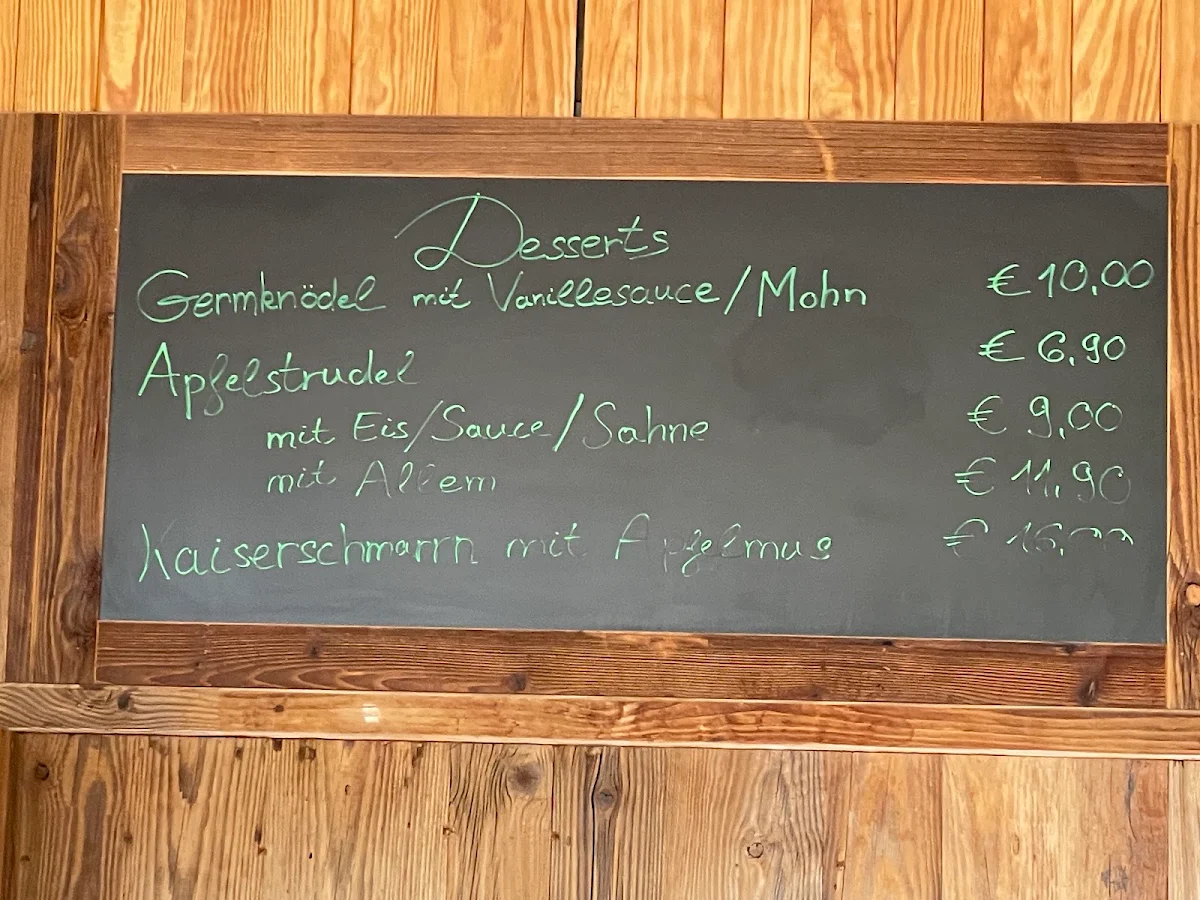 Desserts
Germknödel mit Vanillesauce/Mohn € 10,00
Apfelstrudel € 6,90
mit Eis/Sauce/Sahne € 9,00
mit Allem € 11,90
Kaiserschmarrn mit Apfelmus €